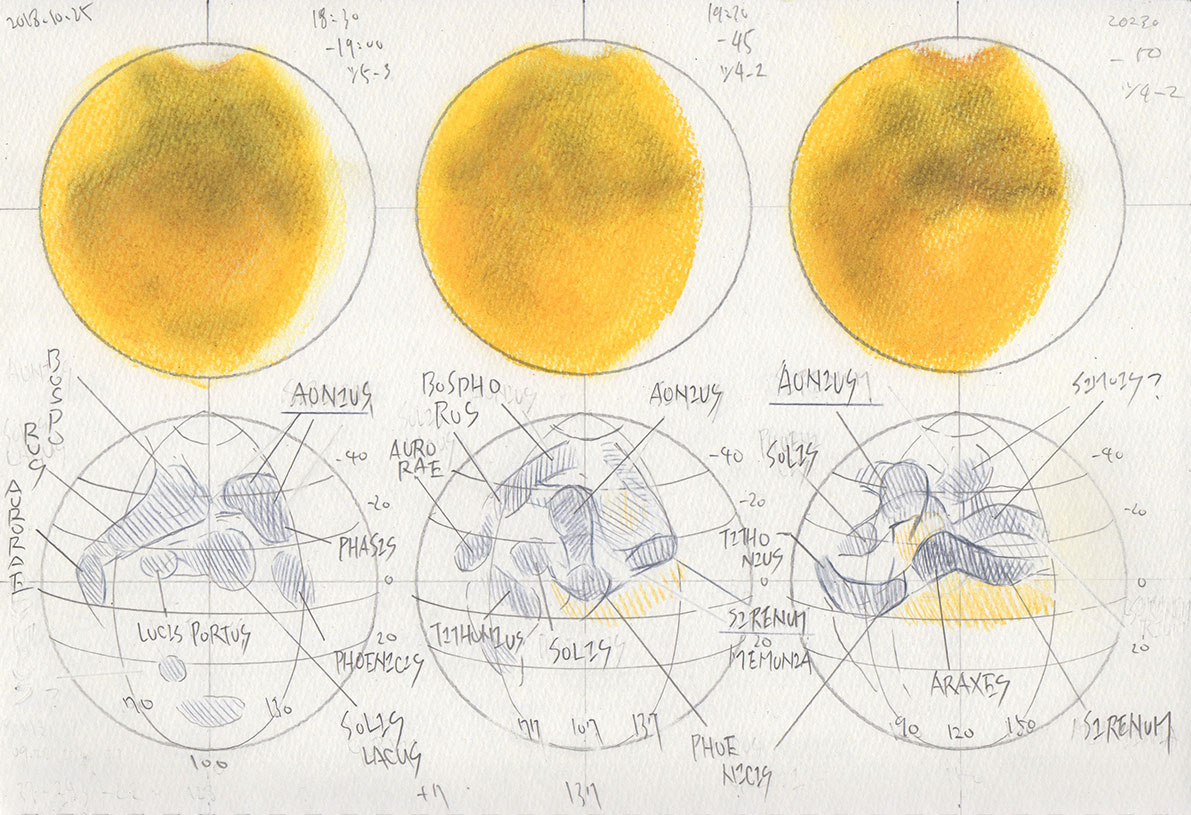 2018.10.25
18:30
-19:00
1/5-3
19:20
-45
1/4-2
20:30
-50
1/4-2
BOSPO
RUS
AURORAE
AONIUS
-40
-20
PHASIS
0
LUCIS PORTUS
20
PHOENICIS
70
130
SOLIS
LACUS
100
BOSPHO
RUS
AURO
RAE
AONIUS
-40
-20
0
TITHONIUS
SOLIS
SIRENUM
20
MEMONIA
77 107 137
PHOE
NICIS
+7
137
AONIUS
SIMOIS?
SOLIS
-40
-20
TITHO
NIUS
0
20
ARAXES
90 120 150
SIRENUM